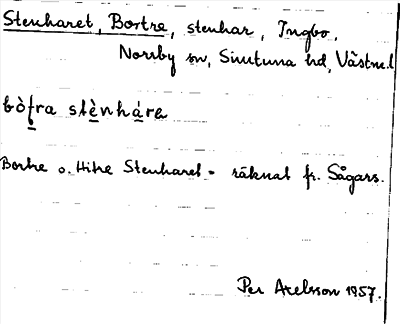 Stenharet, Bortre, stenhar, Ingbo,
Norrby sn, Simtuna hd, Västm.l
bòt̲ra stè̲nhá̲ra
Bortre o. Hitre Stenharet - räknat fr. Sågars.
Per Axelsson 1957.